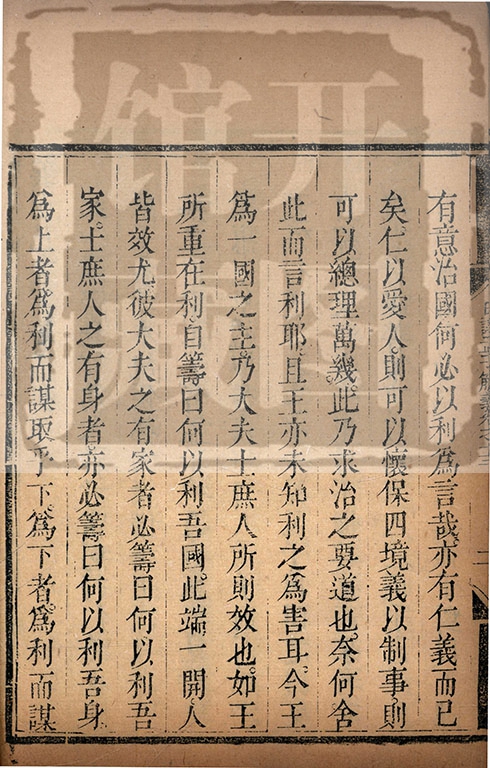 有意治國何必以利爲言哉亦有仁義而已
矣仁以愛人則可以懷保四境義以制事則
可以總理萬幾此乃求治之要道也奈何舍
此而言利耶且王亦未知利之爲害耳今王
爲一國之主乃大夫士庶人所則效也如王
所重在利自籌曰何以利吾國此端一開人
皆效尤彼大夫之有家者必籌曰何以利吾
家士庶人之有身者亦必籌曰何以利吾身
爲上者爲利而謀取乎下爲下者爲利而謀